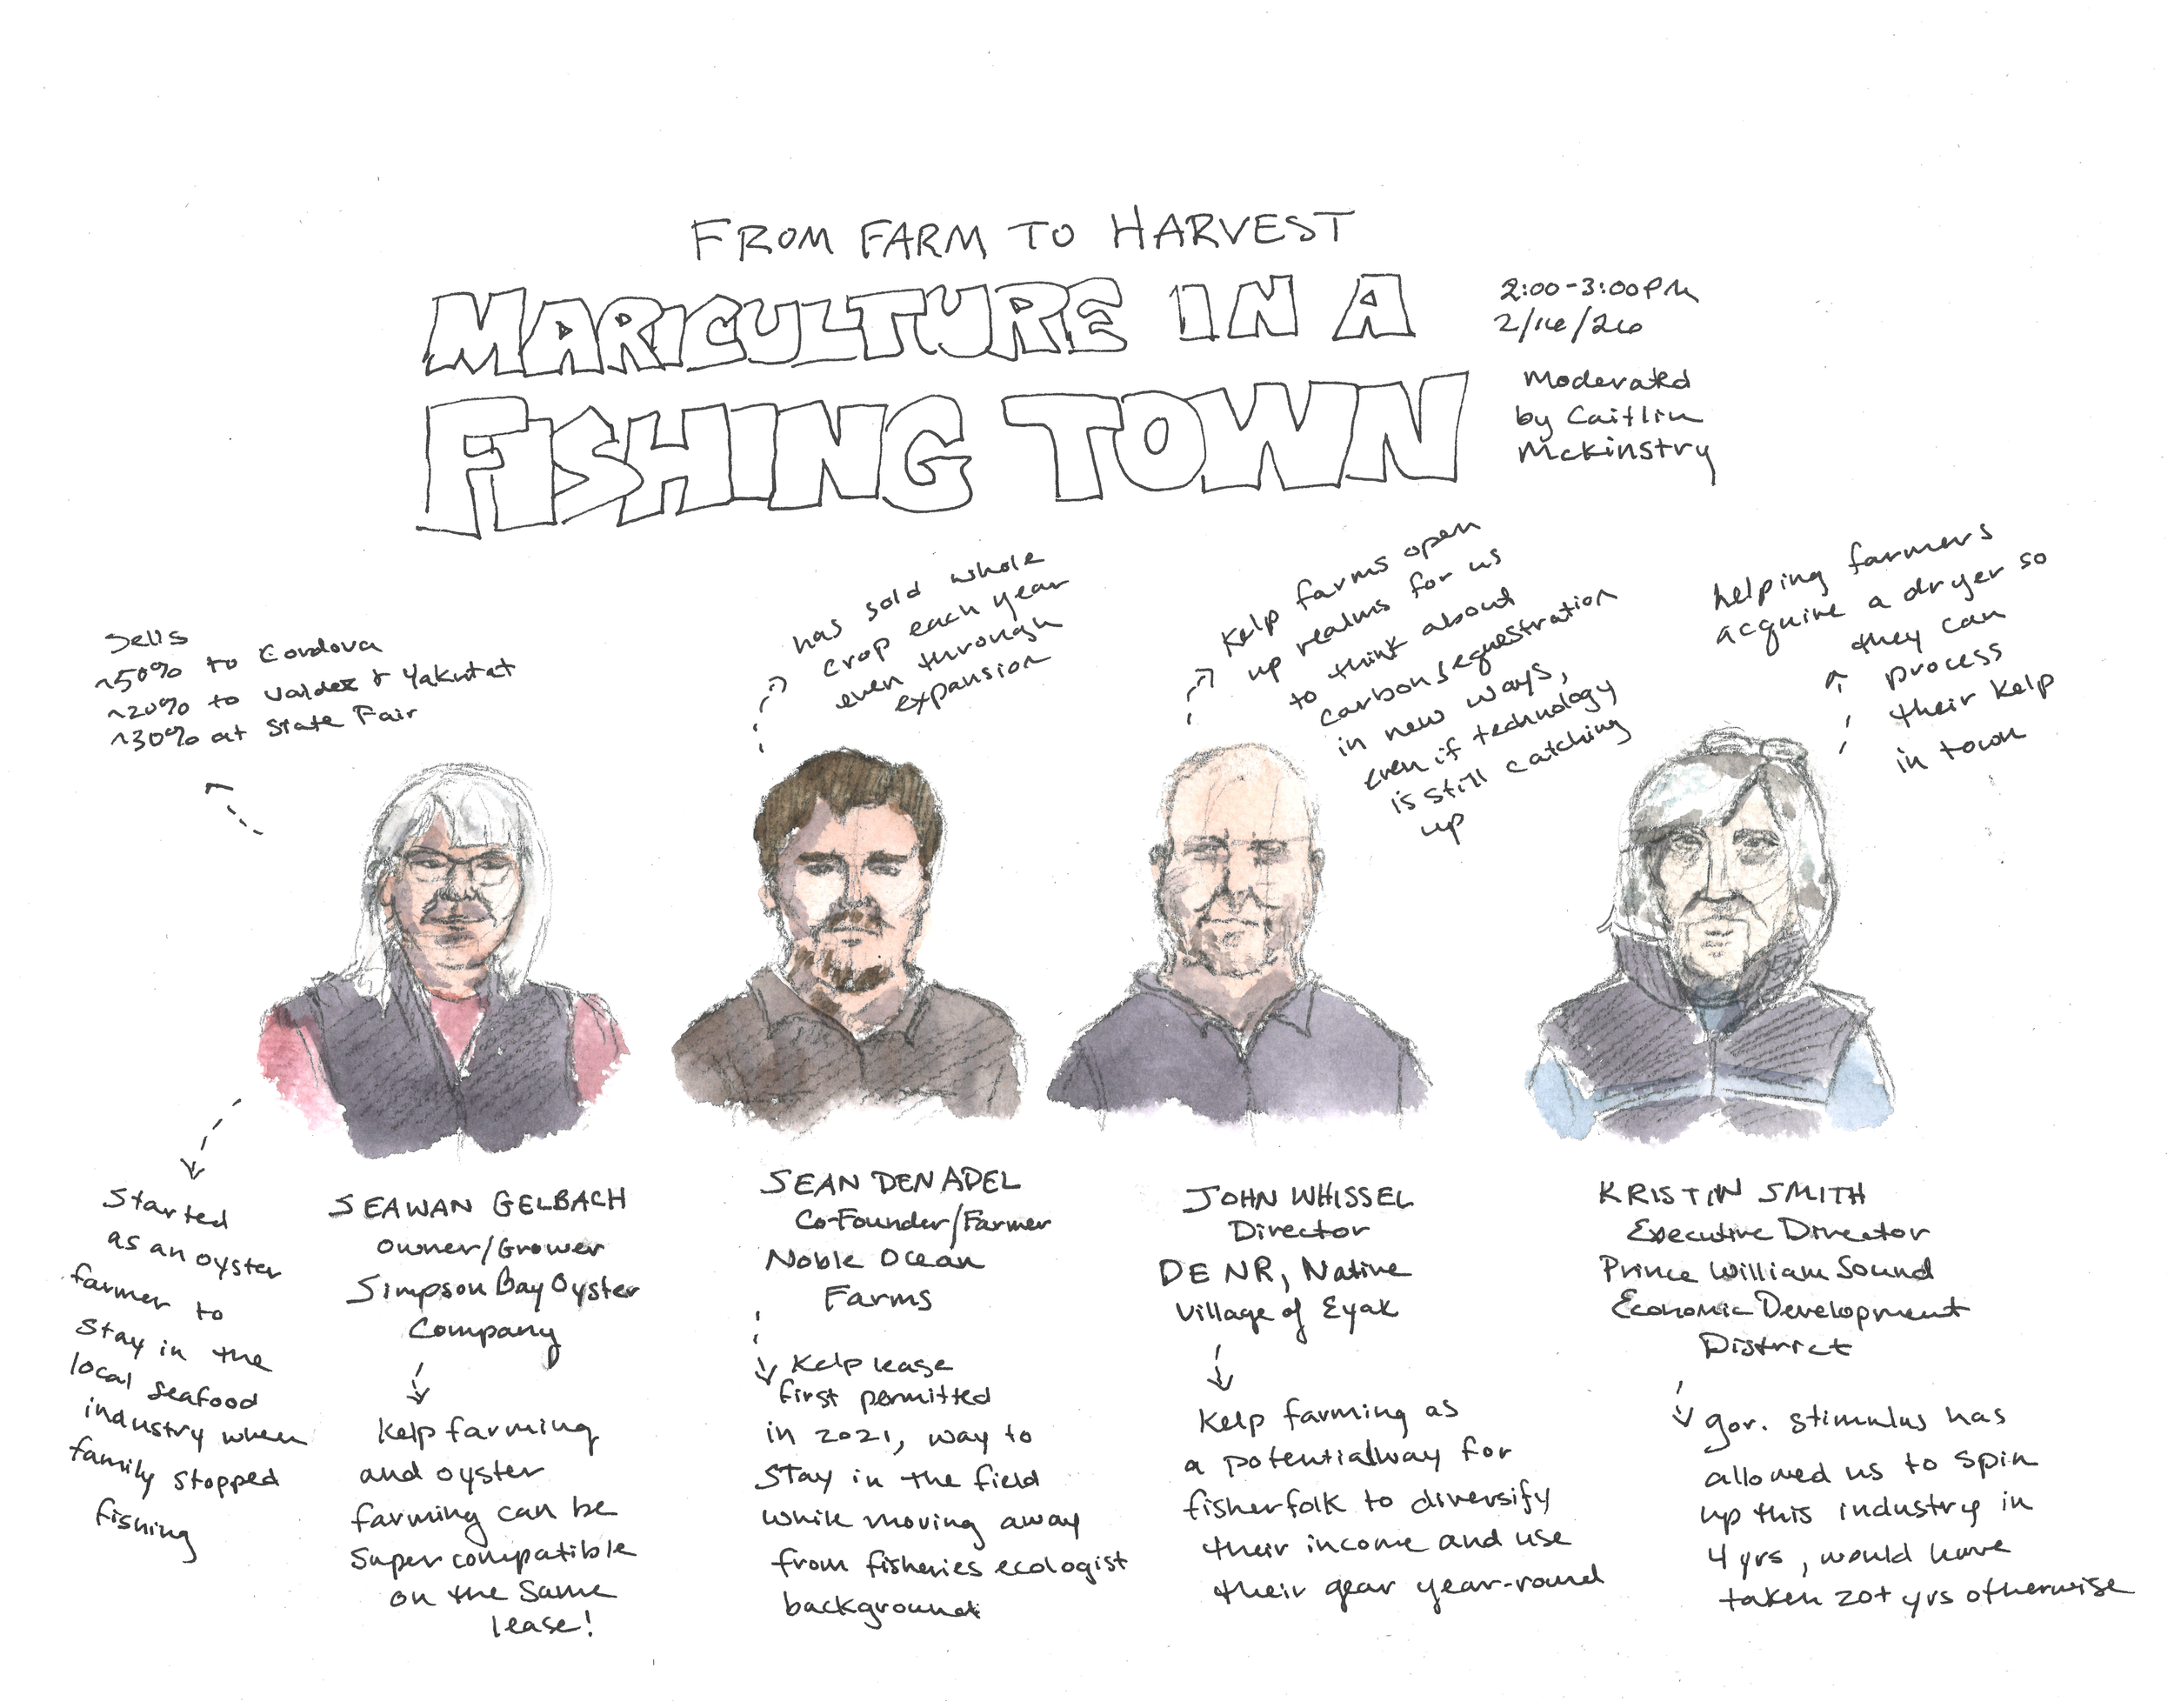 FROM FARM TO HARVEST
MARICULTURE IN A
FISHING TOWN
2:00-3:00PM
2/16/26
Moderated
by Caitlin
McKinstry
Sells
~50% to Cordova
~20% to Valdez & Yakutat
~30% at State Fair
has sold whole
crop each year
even through
expansion
Kelp farms open
up realms for us
to think about
carbon sequestration
in new ways,
even if technology
is still catching
up
helping farmers
acquire a dryer so
they can
process
their kelp
in town
Started
as an oyster
farmer to
stay in the
local seafood
industry when
family stopped
fishing
SEAWAN GELBACH
Owner/Grower
Simpson Bay Oyster
Company
Kelp farming
and oyster
farming can be
super compatible
on the same
lease!
SEAN DEN ADEL
Co-Founder/Farmer
Noble Ocean
Farms
Kelp lease
first permitted
in 2021, way to
stay in the field
while moving away
from fisheries ecologist
background
JOHN WHISSEL
Director
DENR, Native
Village of Eyak
Kelp farming as
a potential way for
fisherfolk to diversify
their income and use
their gear year-round
KRISTIN SMITH
Executive Director
Prince William Sound
Economic Development
District
gov. stimulus has
allowed us to spin
up this industry in
4 yrs, would have
taken 20+ yrs otherwise